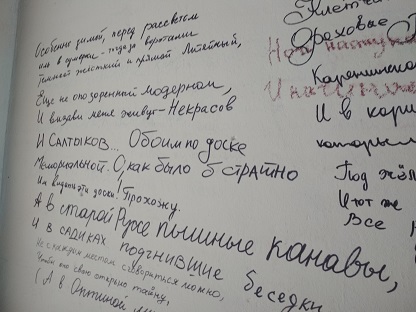 Особенно зимой, перед рассветом
иль в сумерки - тогда за воротами
Темнеет жесткий и прямой Литейный,
Еще не опозоренный модерном,
И визави меня живут - Некрасов
И Салтыков... Обоим по доске
Мемориальной. О, как было б страшно
Им видеть эти доски! Прохожу.
А в старой Руссе пышные канавы,
И в садиках подгнившие беседки
Не с каждым местом сговориться можно,
Чтобы оно свою открыло тайну,
(А в Оптиной
Ореховые
И в кори
Под
И тот же
Все